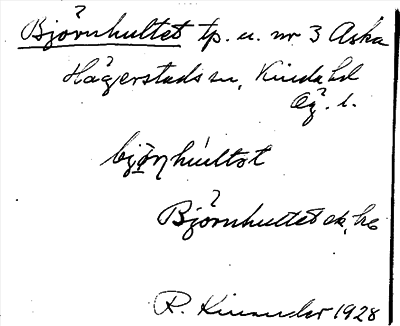 Björnhultet tp. u. nr 3 Aska
Hägerstads sn, Kinda hd
Ög. l.
bjö̱ηhúltət
Björnhultet ek. kb
R. Kinander 1928